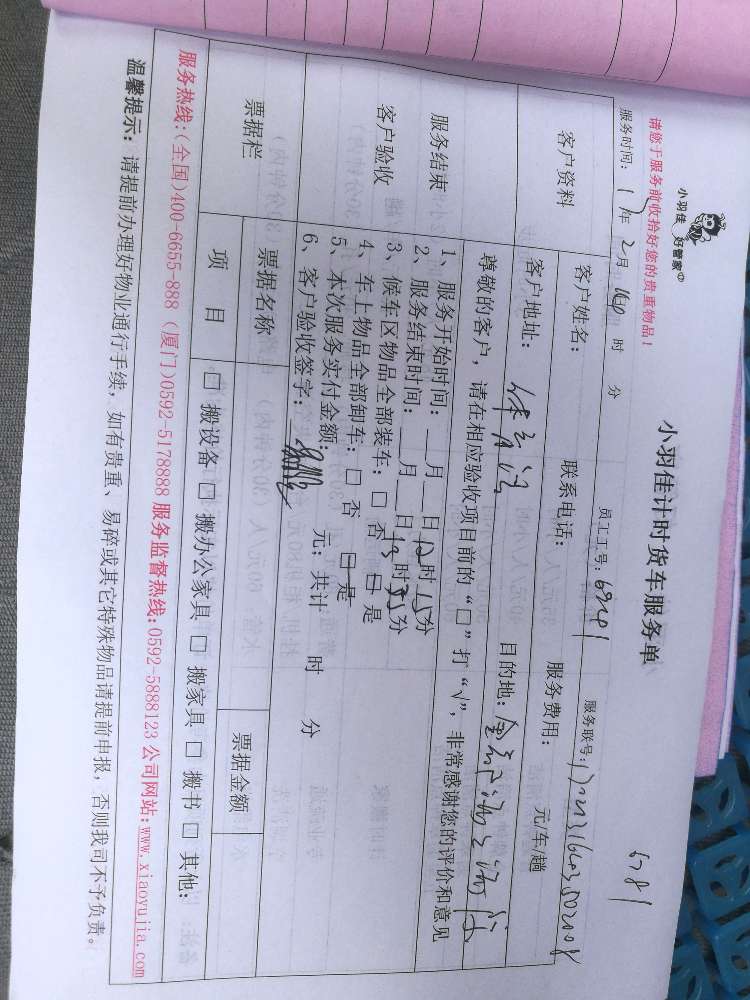 6781
小羽佳
好管家
小羽佳计时货车服务单
请您于服务前收拾好您的贵重物品！
服务时间：17年2月 时 分 员工工号： 服务联号：
客户资料
客户姓名： 联系电话： 服务费用： 元/车/趟
客户地址： 目的地：
尊敬的客户，请在相应验收项目前的“□”打“√”，非常感谢您的评价和意见
服务结束
客户验收
1、服务开始时间：__月__日12时15分
2、服务结束时间：__月__日13时35分
3、候车区物品全部装车：□ 否 □ 是
4、车上物品全部卸车：□ 否 □ 是
5、本次服务实付金额： 元；共计 时 分
6、客户验收签字：
票据栏
票据名称 票据金额
项 目 □ 搬设备 □ 搬办公家具 □ 搬家具 □ 搬书 □ 其他：
服务热线：(全国)400-6655-888 (厦门)0592-5178888 服务监督热线：0592-5888123 公司网站：www.xiaoyujia.com
温馨提示：请提前办理好物业通行手续，如有贵重、易碎或其它特殊物品请提前申报，否则我司不予负责。